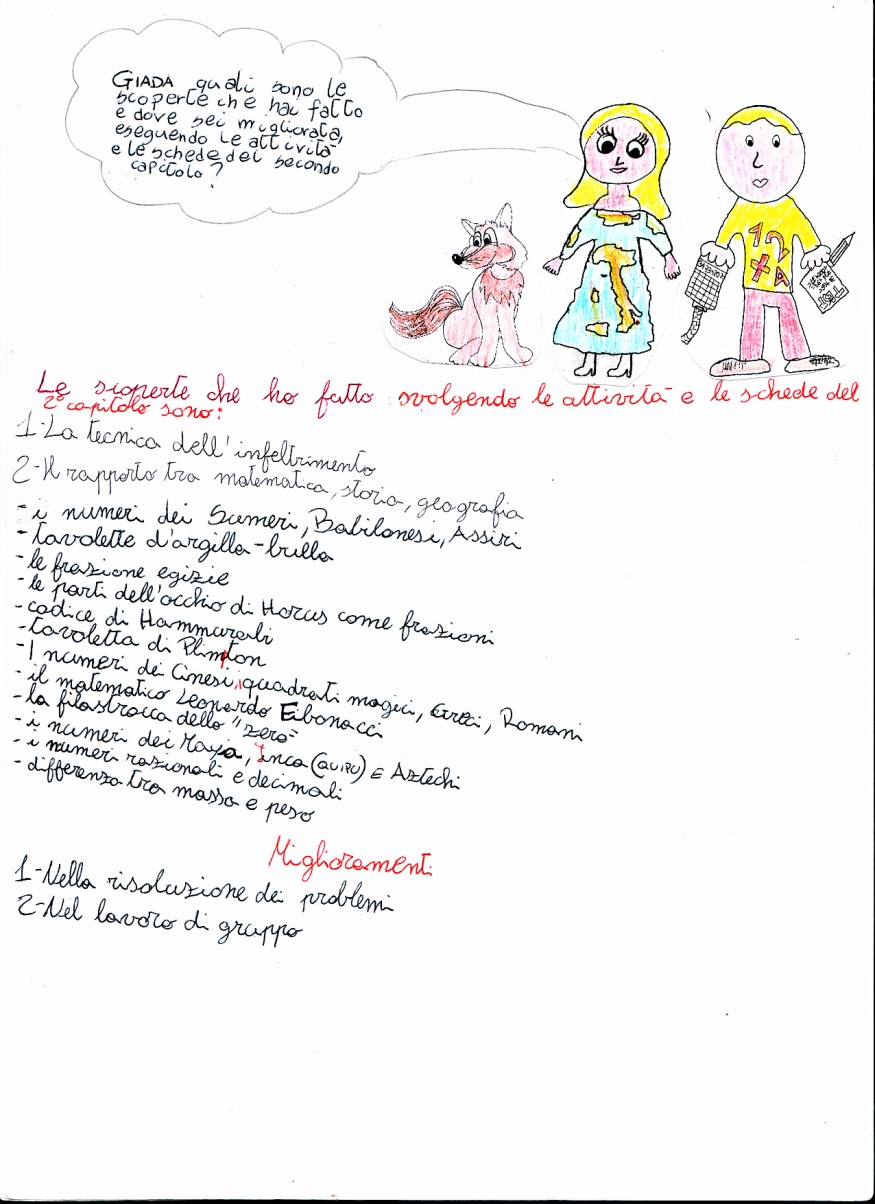 GIADA quali sono le
scoperte che hai fatto
e dove sei migliorata,
eseguendo le attività
e le schede del secondo
capitolo?
12
XA
Le scoperte che ho fatto svolgendo le attività e le schede del
2° capitolo sono:
1-La tecnica dell'infeltrimento
2-Il rapporto tra matematica, storia, geografia
-i numeri dei Sumeri, Babilonesi, Assiri
-tavolette d'argilla-brilla
-le frazione egizie
-le parti dell'occhio di Horus come frazioni
-codice di Hammurabi
-tavoletta di Plimpton
-I numeri dei Cinesi, quadrati magici, Greci, Romani
-il matematico Leonardo Fibonacci
-la filastrocca dello "zero"
-i numeri dei Maya, Inca (QUIPU) E Aztechi
-i numeri razionali e decimali
-differenza tra massa e peso
Miglioramenti
1-Nella risoluzione dei problemi
2-Nel lavoro di gruppo